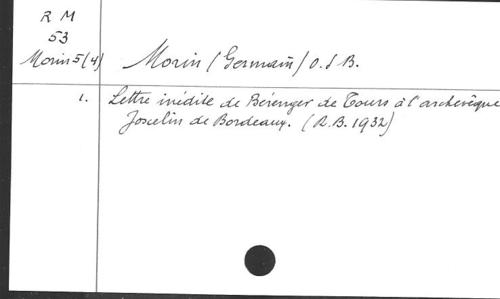 R M
53
Morin 5(4) Morin (Germain) O.S.B.
1. Lettre inédite de Bérenger de Tours à l'archevêque
Joscelin de Bordeaux. (R.B. 1932)